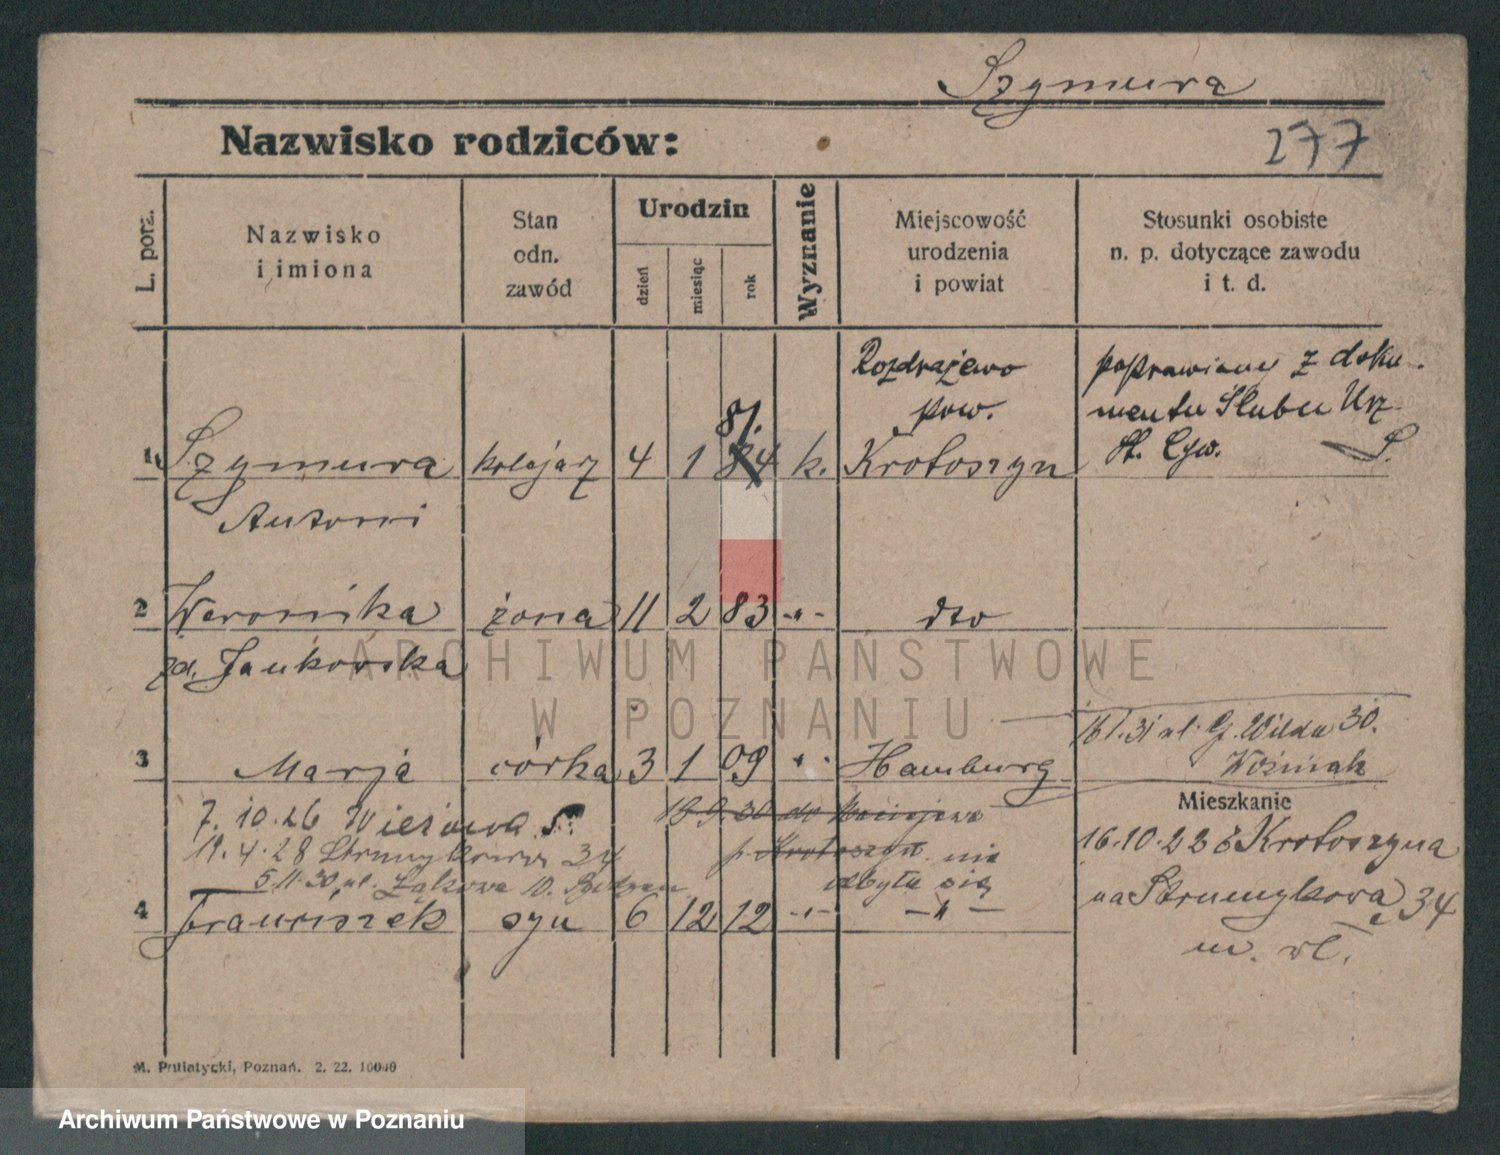 Szymura
Nazwisko rodziców:
277
L. porz.
Nazwisko
i imiona
Stan
odn.
zawód
Urodzin
dzień
miesiąc
rok
Wyznanie
Miejscowość
urodzenia
i powiat
Stosunki osobiste
n. p. dotyczące zawodu
i t. d.
Rozdrażewo
pow.
poprawiony z doku-
mentu Ślubu Urz.
St. Cyw. S.
81.
1. Szymura kolejarz 4 1 84 k. Krotoszyn
Antoni
2 Weronika żona 11 2 83 -"- dto
zd. Jankowska
ARCHIWUM PAŃSTWOWE
W POZNANIU
16.1.31 ul. G. Wilda 30.
Woźniak
3 Marja córka 3 1 09 " Hamburg
Mieszkanie
7. 10. 26
19. 4. 28 Strumykowa 34
5.11.30 ul. Łąkowa 10.
18.9.30 do
p. Krotoszyn nie
odbyła się
16.10.22 z Krotoszyna
na Strumykową 34
4 Franciszek syn 6 12 12 -"- -"-
m. wł.
M. Putiatycki, Poznań. 2. 22. 10000
Archiwum Państwowe w Poznaniu